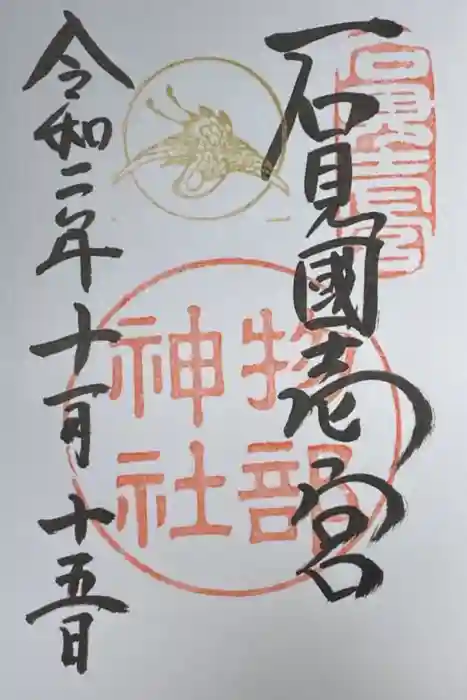 石見國壱宮
石見一宮
物部
神社
令和二年十一月十五日